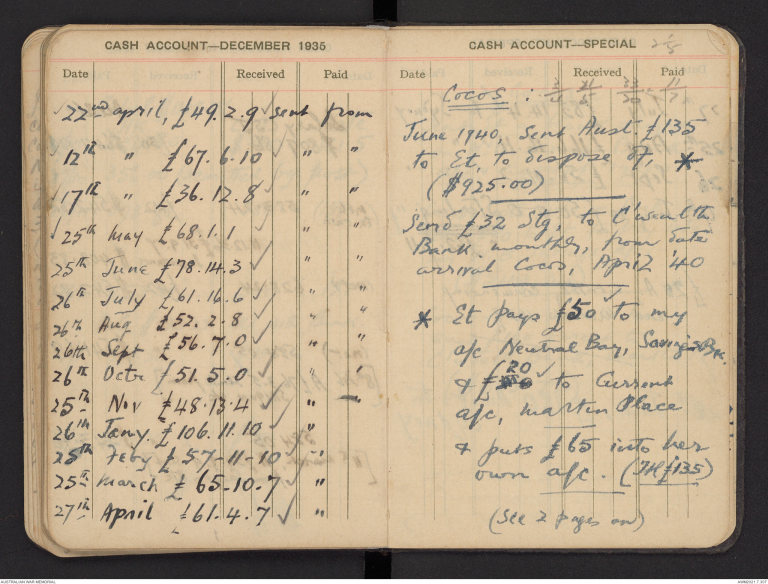 CASH ACCOUNT—DECEMBER 1935
Date Received Paid
22nd april, £49.2.9 sent from
12th " £67.6.10 " "
17th " £36.12.8 " "
25th May £68.1.1 " "
25th June £78.14.3 " "
26th July £61.16.6 " "
26th Aug £52.2.8 " "
26th Sept £56.7.0 " "
26th Octr £51.5.0 " "
25th Nov £48.13.4 "
26th Jany. £106.11.10 "
25th Feby £57-11-10 "
25th March £65.10.7 "
27th April £61.4.7 "
CASH ACCOUNT—SPECIAL
Date Received Paid
Cocos :
June 1940, sent Aust. £135
to Et, to dispose of, *
($925.00)
Send £32 Stg, to C'wealth
Bank monthly, from date
arrival Cocos, April '40
* Et pays £50 to my
a/c Neutral Bay, Savings Bk.
& £20 to Current
a/c, Martin Place
& puts £65 into her
own a/c. (Ttl £135)
(See 2 pages on)
AUSTRALIAN WAR MEMORIAL